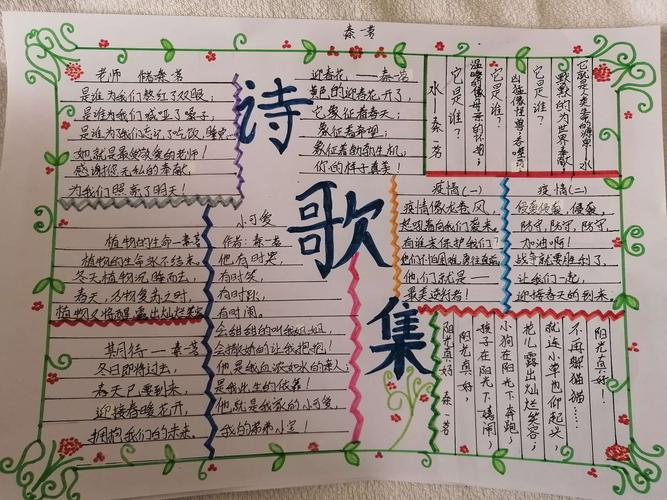 秦芳
诗歌集
老师 储秦芳
是谁为我们熬红了双眼；
是谁为我们喊哑了嗓子；
是谁为我们忘记了吃饭、睡觉
她就是最受敬爱的老师！
感谢你无私的奉献，
为我们照亮了明天！
迎春花，——秦芳
黄色的迎春花开了，
它象征着春天；
象征着希望；
象征着勃勃生机，
你的样子真美！
它就是人类生命的源泉：水
默默的为世界奉献！
它是谁？
凶猛像怪兽；
它是谁？
温暖的像母亲的怀抱；
它是谁？
水—秦芳
疫情（一）
疫情像龙卷风，
起吼着向我们袭来。
有谁来保护我们？
他们不怕困难，勇往直前。
他们就是——
最美逆行者！
疫情（二）
侵袭侵袭，侵袭，
防守，防守，防守，
加油啊！
战争就要胜利了，
让我们一起，
迎接春天的到来。
植物的生命—秦芳
植物的生命永不结束。
冬天植物沉睡而去，
春天，万物复苏之时，
植物又将醒，露出灿烂笑容
期待—秦芳
冬日即将过去，
春天已要到来，
迎接春暖花开，
拥抱我们的未来。
小可爱
作者：秦芳
他，有时哭，
有时笑，
有时趴，
有时闹。
会甜甜的叫我姐姐，
会撒娇的让我抱抱！
他是我血浓如水的亲人；
是我此生的依靠！
他就是我家的小可爱，
我的弟弟小宝！
阳光真好！
不再躲猫猫……
就连小草也仰起头，
花儿露出灿烂笑容；
小狗在阳光下奔跑；
孩子在阳光下嬉闹
阳光真好，
阳光真好 秦芳